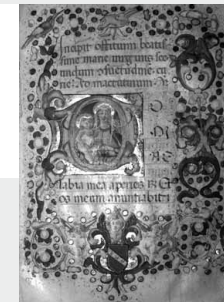 Incipit offitium beatis
sime marie virginis sco
ndum
rie. Ad matutinum. V.
D
labia mea aperies. R. Et
os meum anuntiabit